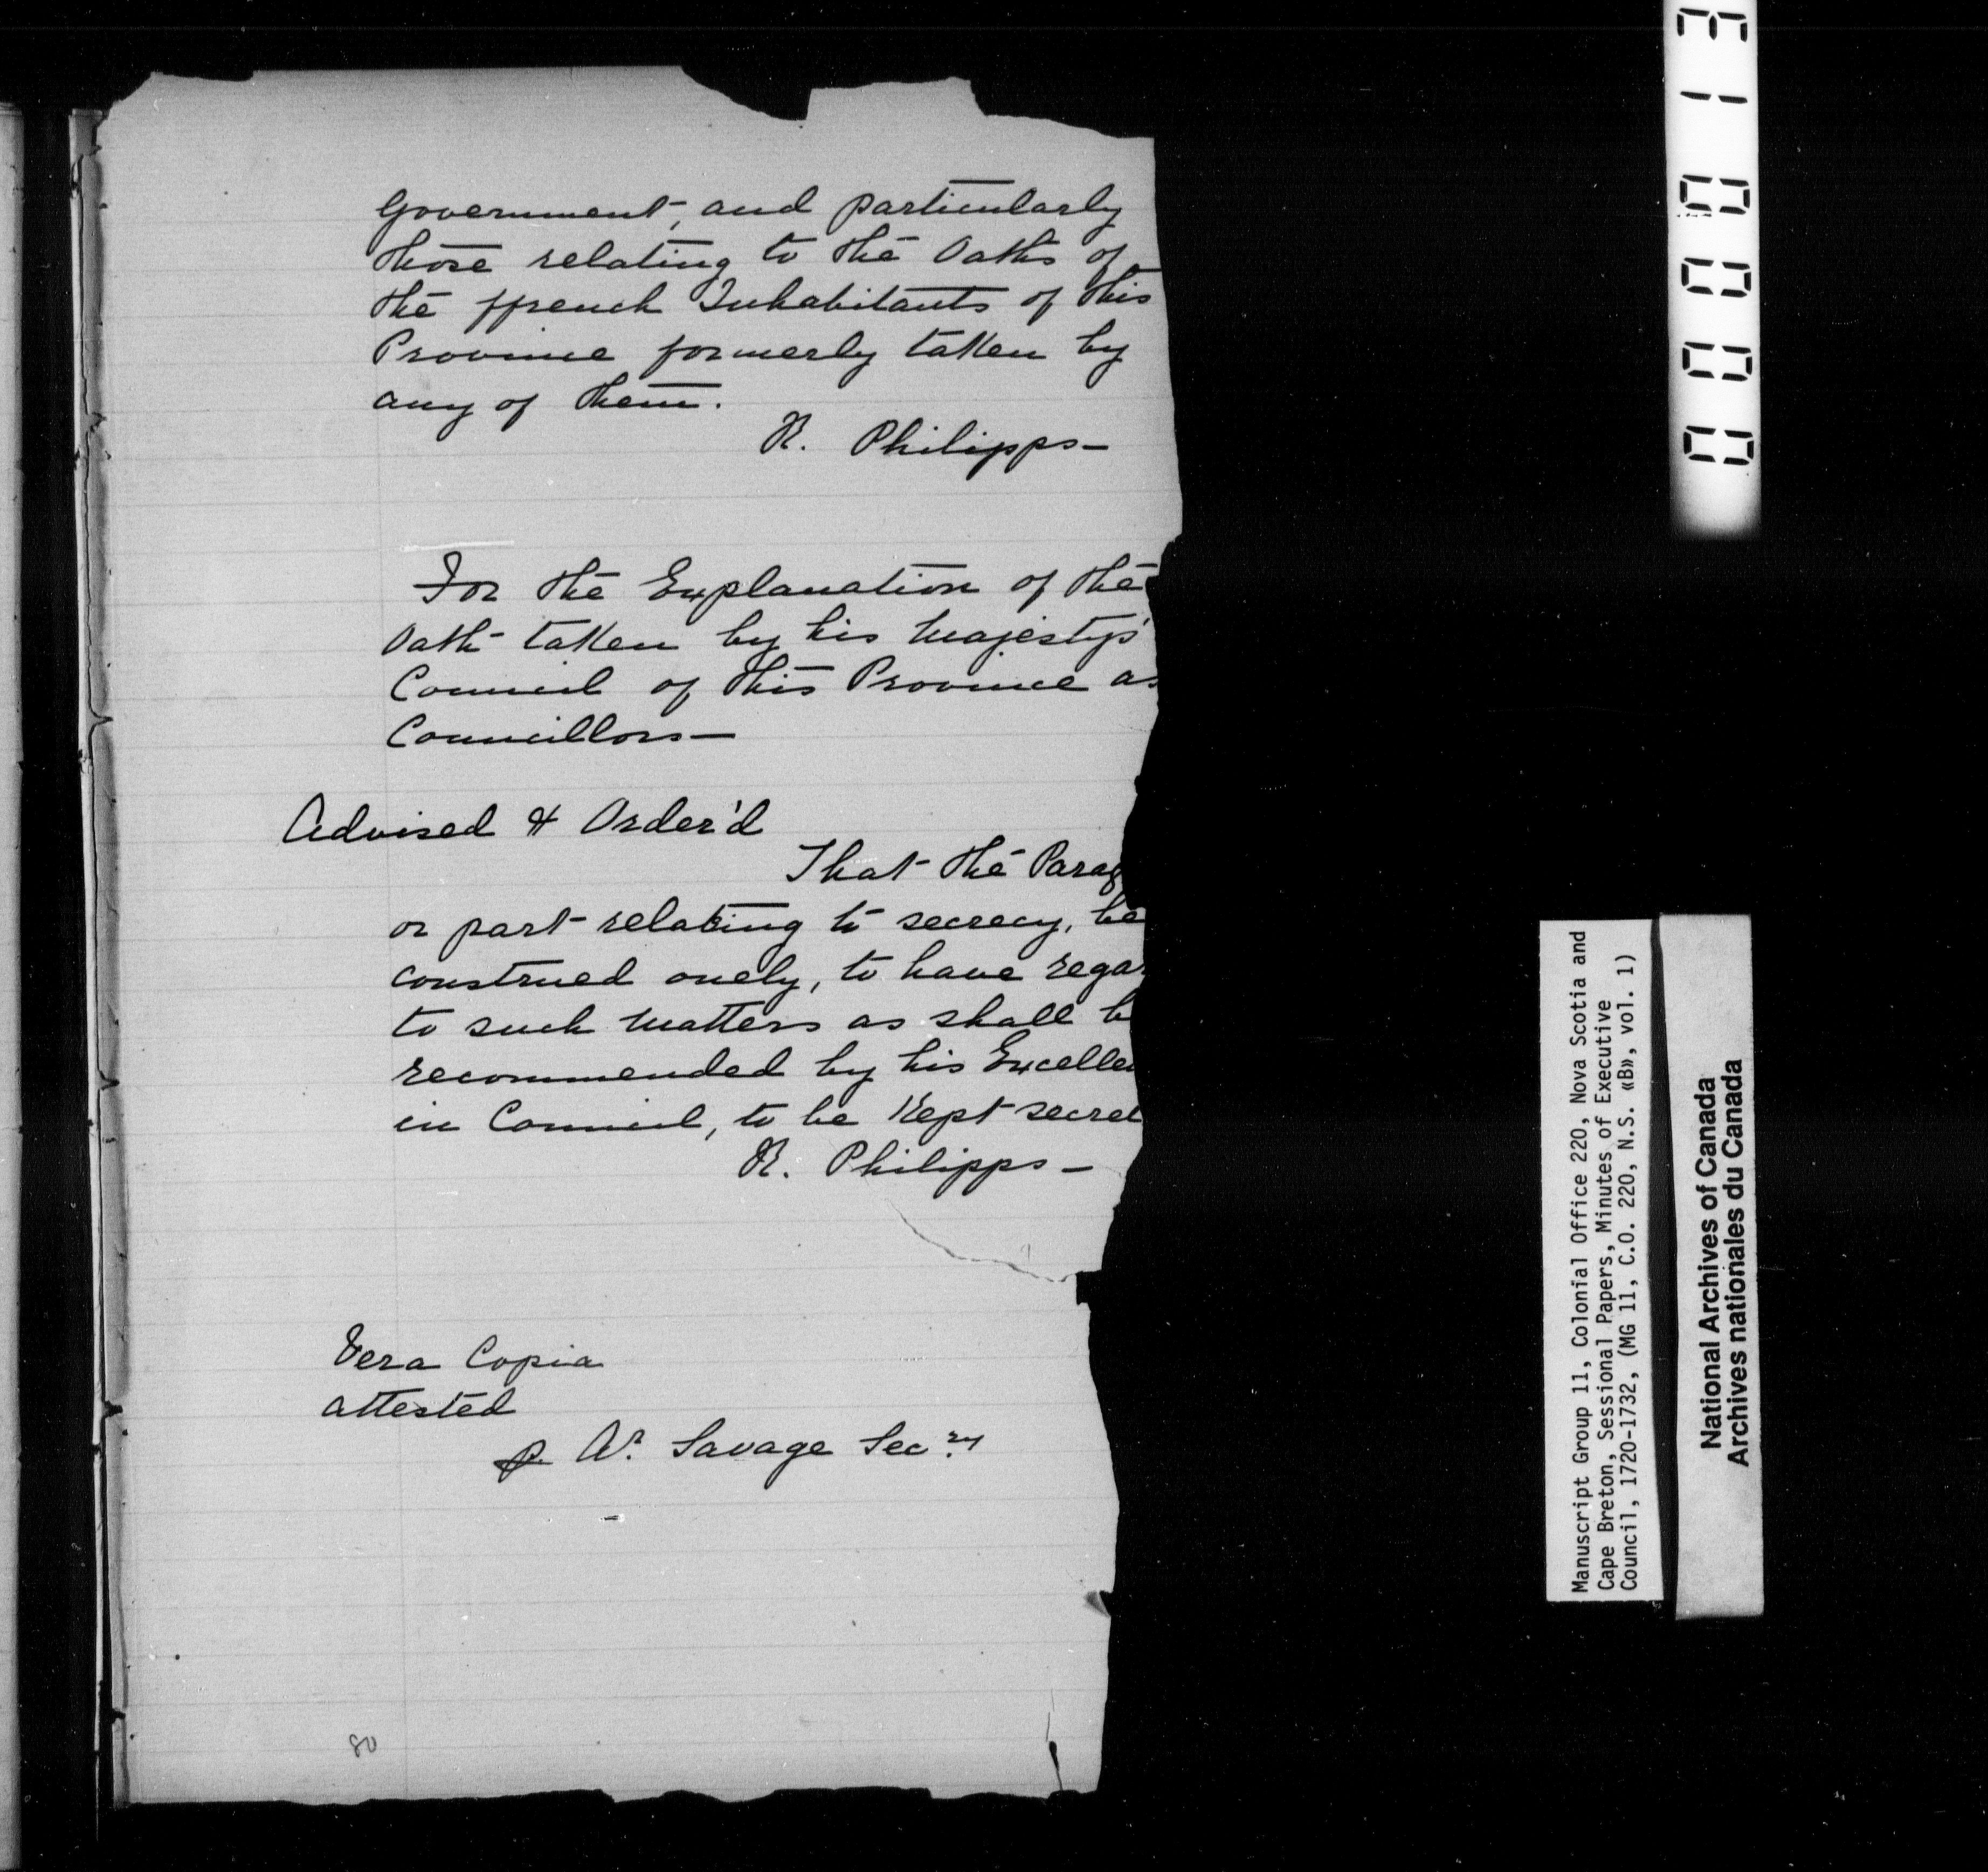 Government, and particularly
those relating to the Oaths of
the ffrench Inhabitants of this
Province formerly taken by
any of them.
R. Philipps—
For the Explanation of the
Oath taken by his Majestys'
Council of this Province as
Councillors—
Advised & Order'd
That the Parag
or part relating to secrecy, be
construed onely, to have regar
to such matters as shall b
recommended by his Excellen
in Council, to be Kept secret
R. Philipps—
Vera Copia
attested
p. Ar. Savage Secry
80
000013
Manuscript Group 11, Colonial Office 220, Nova Scotia and
Cape Breton, Sessional Papers, Minutes of Executive
Council, 1720-1732, (MG 11, C.O. 220, N.S. «B», vol. 1)
National Archives of Canada
Archives nationales du Canada